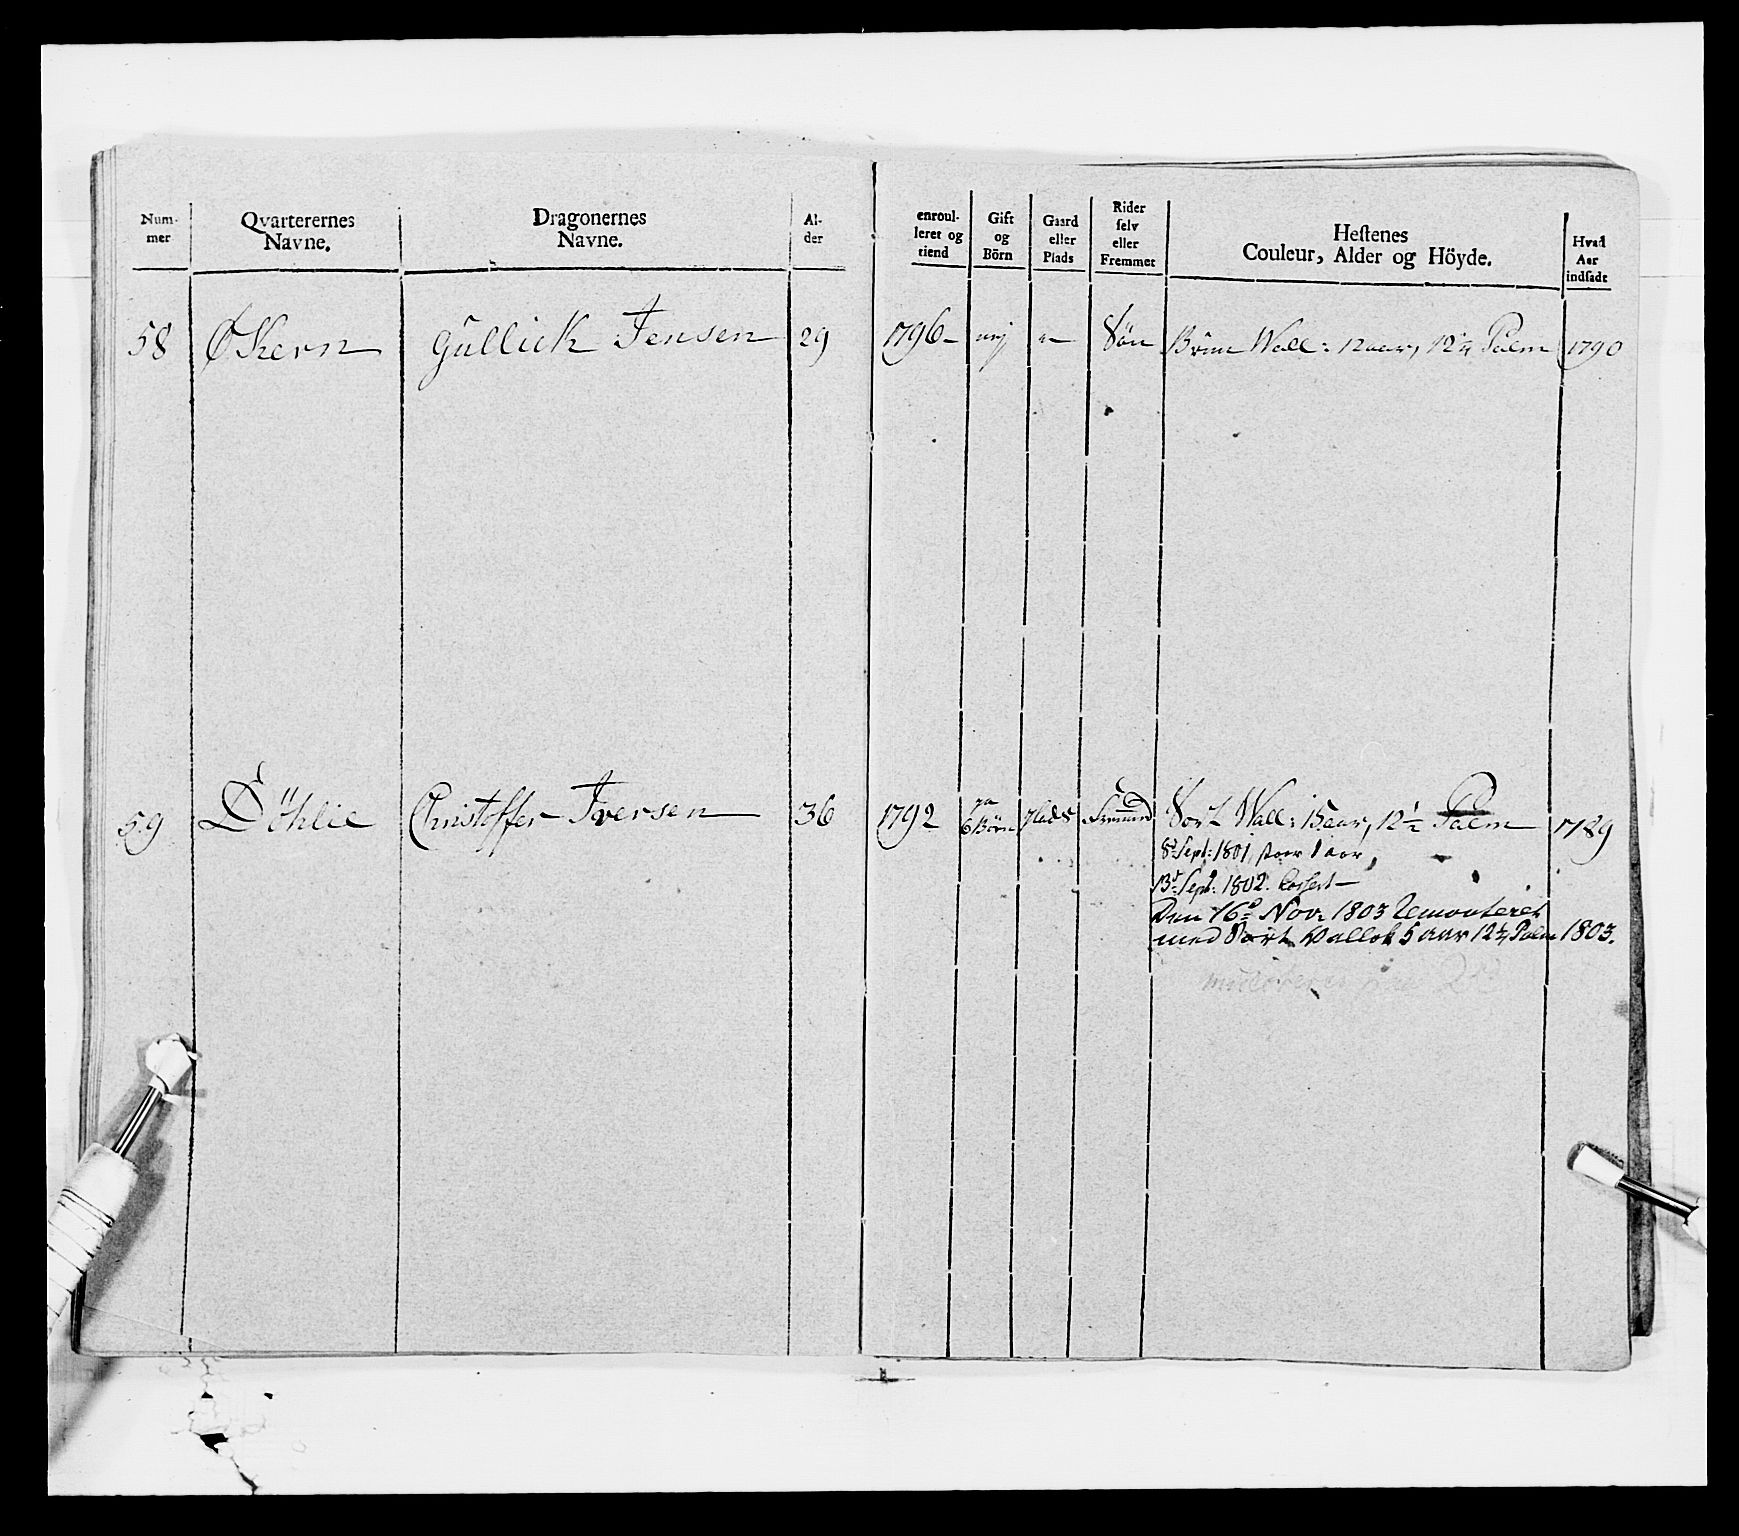 Num-
mer
Qvarterernes
Navne.
Dragonernes
Navne.
Al-
der
enroul-
leret og
tiend
Gift
og
Börn
Gaard
eller
Plads
Rider
selv
eller
Fremmet
Hestenes
Couleur, Alder og Höyde.
Hvad
Aar
indsadt
58 Økern Gullick Jensen 29 1796 Brun Wall: 12 aar, 12 1/4 Palm 1790
59 Döhlie Christoffer Iversen 36 1792 6 Börn Plads Fremmed Sort Wall: 15 aar, 12 1/2 Palm 1789
8d Sept: 1801, 1 aar,
13d Sept: 1802. Casseret
Den 16d Nov: 1803 Remonteret
med Sort Wallak 5 aar 12 1/2 Palm 1803.